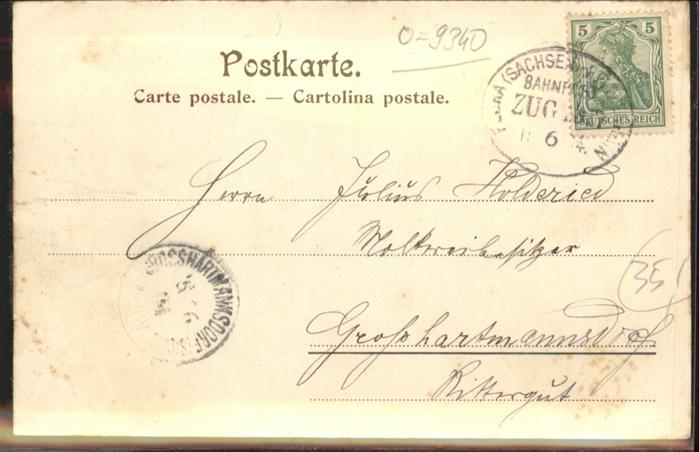 0=9340
5 5
Postkarte.
DEUTSCHES REICH
(SACHSEN)
BAHNPOST
ZUG
6
Carte postale. — Cartolina postale.
Herrn Julius Holderied
Molkereibesitzer
GROSSHARTMANNSDORF
(35)
Großhartmannsdorf
Rittergut